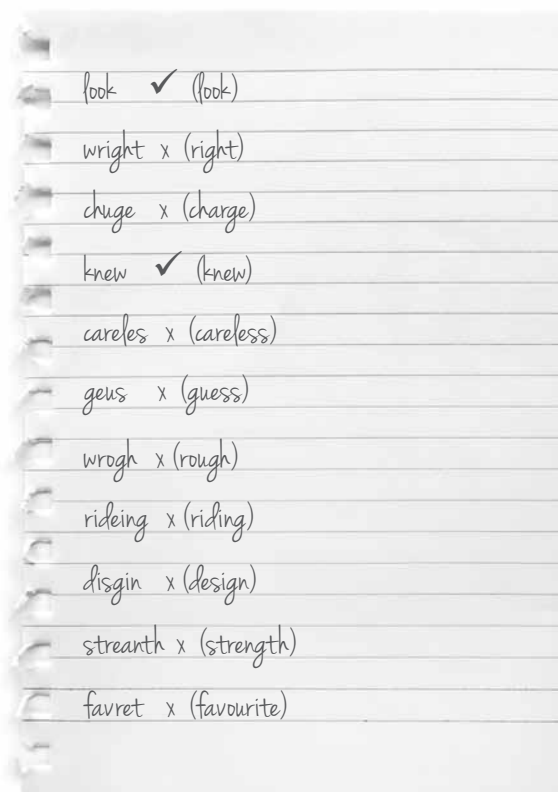 look ✓ (look)
wright x (right)
chuge x (charge)
knew ✓ (knew)
careles x (careless)
geus x (guess)
wrogh x (rough)
rideing x (riding)
disgin x (design)
streanth x (strength)
favret x (favourite)